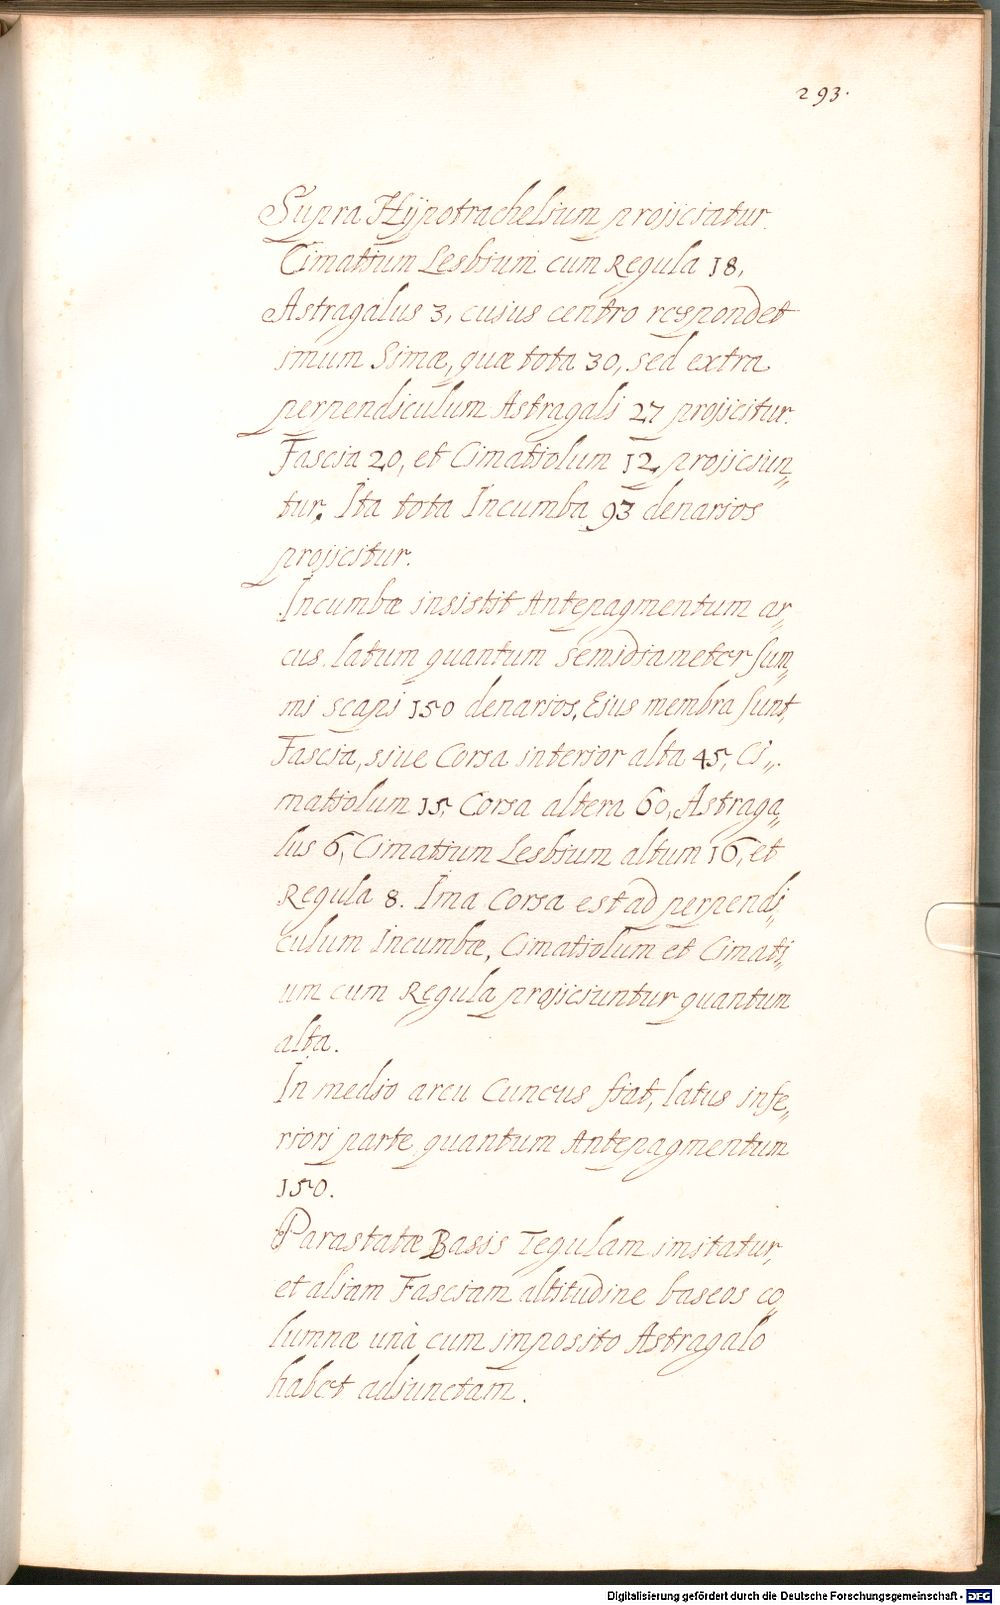 293.
Supra Hÿpotrachelium projiciatur
Cimatium Lesbium cum Regula 18,
Astragalus 3, cuius centro respondet
imum Simæ, quæ tota 30, sed extra
perpendiculum Astragali 27 projicitur.
Fascia 20, et Cimatiolum 12 projiciun„
tur. Ita tota Incumba 93 denarios
projicitur.
Incumbæ insistit Antepagmentum ar„
cus latum quantum semidiameter sum„
mi scapi 150 denarios, Eius membra sunt,
Fascia, siue Corsa interior alta 45, Ci„
matiolum 15, Corsa altera 60, Astraga„
lus 6, Cimatium Lesbium altum 16, et
Regula 8. Ima Corsa est ad perpendi„
culum Incumbæ, Cimatiolum et Cimati„
um cum Regula projiciuntur quantum
alta.
In medio arcu Cuneus fiat, latus infe„
riori parte quantum Antepagmentum
150.
Parastatæ Basis Tegulam imitatur,
et aliam Fasciam altitudine baseos co„
lumnæ unà cum imposito Astragalo
habet adiunctam.
Digitalisierung gefördert durch die Deutsche Forschungsgemeinschaft - DFG